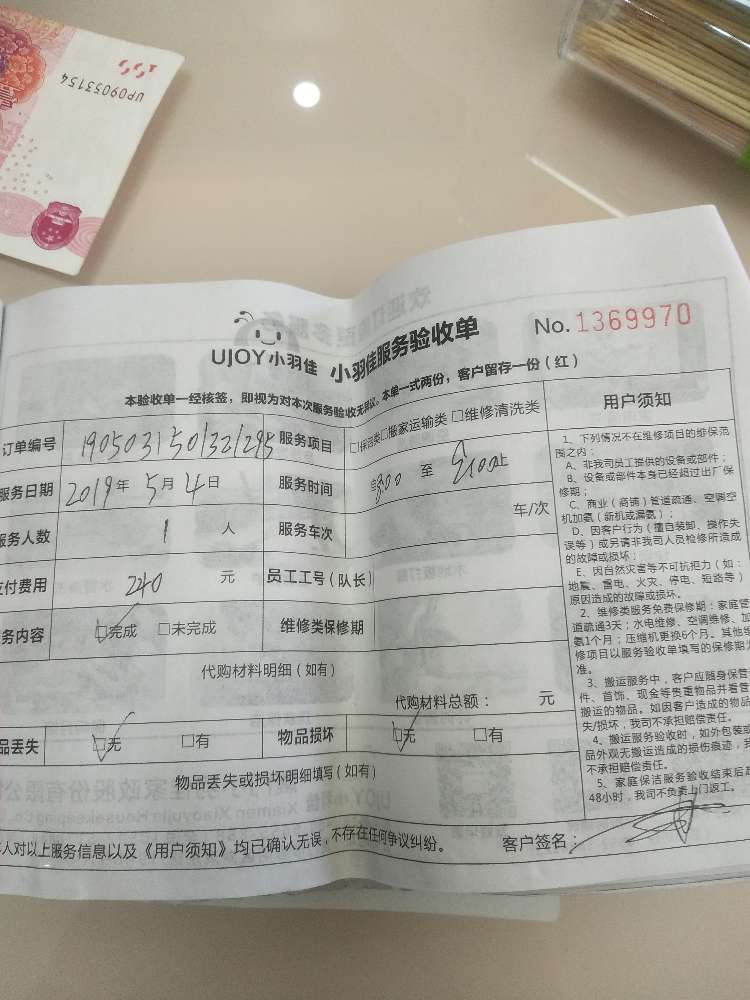 100
UP09053154
UJOY小羽佳
小羽佳服务验收单
No.1369970
本验收单一经核签，即视为对本次服务验收无异议。本单一式两份，客户留存一份（红）
订单编号
服务项目 □保洁类□搬家运输类 □维修清洗类
服务日期 2019年 5月 4日
服务时间 至
服务人数 1 人
服务车次 车/次
支付费用 240 元
员工工号(队长)
务内容 □完成 □未完成
维修类保修期
代购材料明细（如有）
代购材料总额： 元
品丢失 □无 □有
物品损坏 □无 □有
物品丢失或损坏明细填写（如有）
人对以上服务信息以及《用户须知》均已确认无误，不存在任何争议纠纷。
客户签名：
用户须知
1、下列情况不在维修项目的维保范
围之内：
A、非我司员工提供的设备或部件；
B、设备或部件本身已经超过出厂保
修期；
C、商业（商铺）管道疏通、空调空
机加氨（新机或漏氨）；
D、因客户行为（擅自装卸、操作失
误等）或另请非我司人员检修所造成
的故障或损坏；
E、因自然灾害等不可抗拒力（如：
地震、雷电、火灾、停电、短路等）
原因造成的故障或损坏。
2、维修类服务免费保修期：家庭管
道疏通3天；水电维修、空调维修、加
氨1个月；压缩机更换6个月。其他维
修项目以服务验收单填写的保修期为
准。
3、搬运服务中，客户应随身保管
件、首饰、现金等贵重物品并看管
搬运的物品。如因客户造成的物品
失/损坏，我司不承担赔偿责任。
4、搬运服务验收时，如外包装或
品外观无搬运造成的损伤痕迹，我
不承担赔偿责任。
5、家庭保洁服务验收结束后超
48小时，我司不负责上门返工。